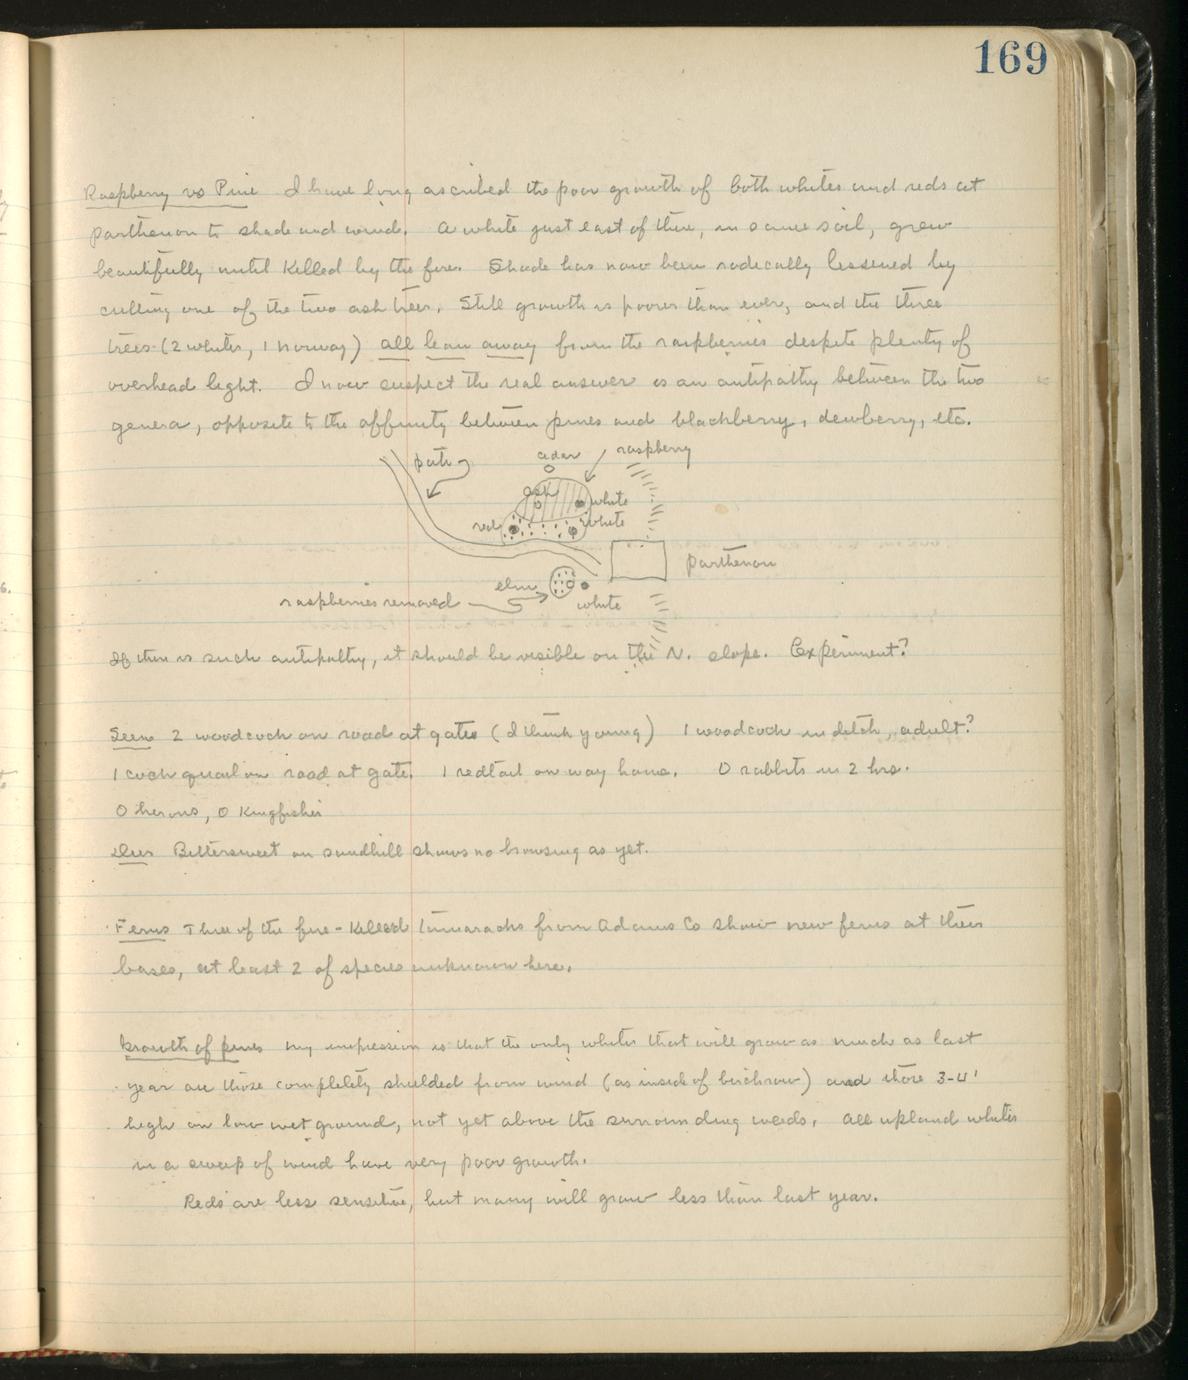 169
Raspberry vs Pine I have long ascribed the poor growth of both whites and reds at
parthenon to shade and wind. A white just east of there, in same soil, grew
beautifully until killed by the fire. Shade has now been radically lessened by
cutting one of the two ash trees. Still growth is poorer than ever, and the three
trees (2 whites, 1 norway) all lean away from the raspberries despite plenty of
overhead light. I now suspect the real answer is an antipathy between the two
genera, opposite to the affinity between pines and blackberry, dewberry, etc.
path cedar raspberry
ash white
red white
parthenon
elm
raspberries removed white
If there is such antipathy, it should be visible on the N. slope. Experiment?
Seen 2 woodcock on road at gates (I think young) 1 woodcock in ditch, adult?
1 cock quail on road at gate. 1 redtail on way home. 0 rabbits in 2 hrs.
0 herons, 0 Kingfisher
Deer Bittersweet on sandhill shows no browsing as yet.
Ferns Three of the fire-killed tamaracks from Adams Co show new ferns at their
bases, at least 2 of species unknown here.
Growth of pines my impression is that the only whites that will grow as much as last
year are those completely shielded from wind (as inside of birchrow) and those 3-4'
high on low wet ground, not yet above the surrounding weeds. All upland whites
in a sweep of wind have very poor growth.
Reds are less sensitive, but many will grow less than last year.